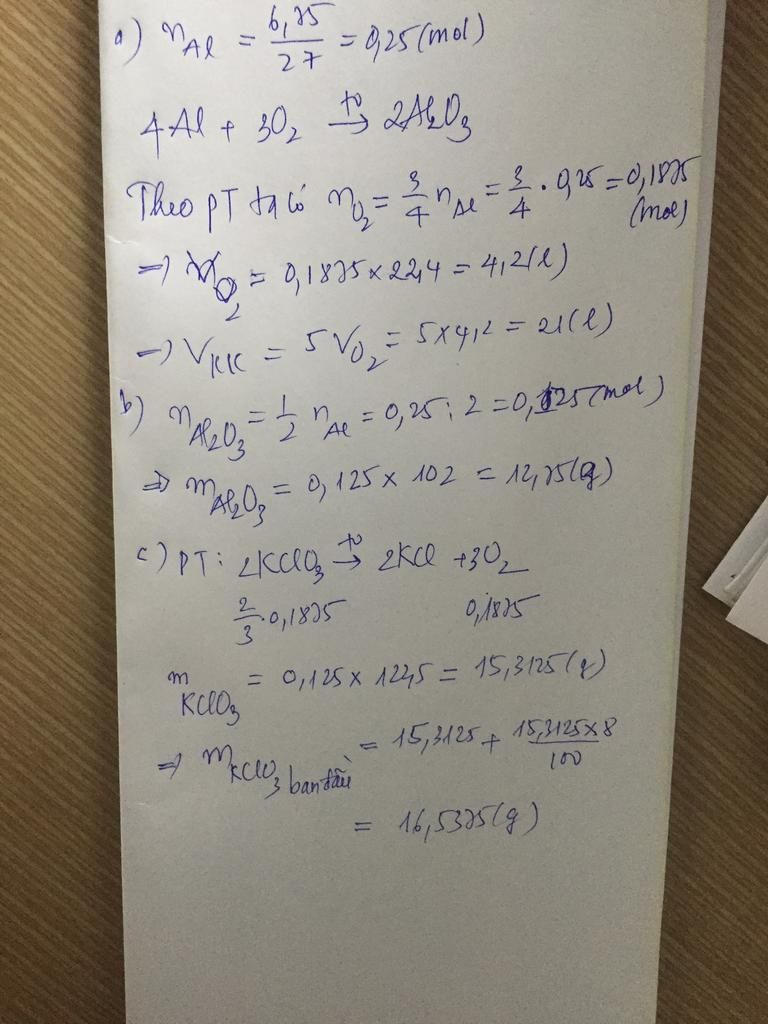 a) nAl = 6,75/27 = 0,25 (mol)
4Al + 3O2 t°→ 2Al2O3
Theo PT ta có nO2 = 3/4 nAl = 3/4 . 0,25 = 0,1875 (mol)
=> VO2 = 0,1875 x 22,4 = 4,2 (l)
=> VKK = 5VO2 = 5 x 4,2 = 21 (l)
b) nAl2O3 = 1/2 nAl = 0,25 : 2 = 0,125 (mol)
=> mAl2O3 = 0,125 x 102 = 12,75 (g)
c) PT: 2KClO3 t°→ 2KCl + 3O2
2/3 . 0,1875 0,1875
mKClO3 = 0,125 x 122,5 = 15,3125 (g)
=> mKClO3 ban đầu = 15,3125 + 15,3125 x 8/100
= 16,5375 (g)